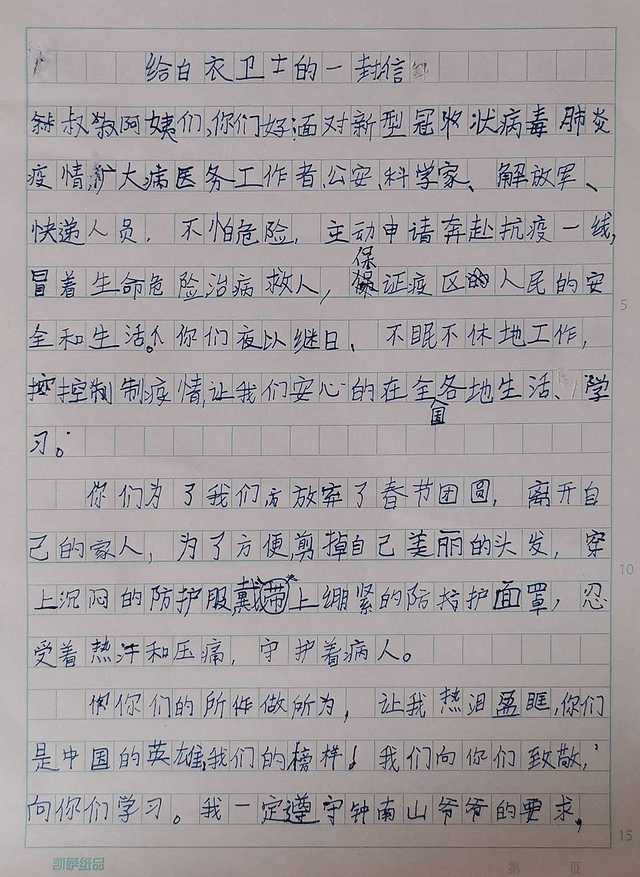 给白衣卫士的一封信
叔叔阿姨们,你们好面对新型冠收状病毒肺炎
疫情,广大病医务工作者、公安、科学家、解放军、
快递人员,不怕危险,主动申请奔赴抗疫一线,
冒着生命危险治病救人,保证疫区的人民的安
全和生活。你们夜以继日、不眠不休地工作,
控制疫情,让我们安心的在全国各地生活、学
习。
你们为了我们,放弃了春节团圆,离开自
己的家人,为了方便,剪掉自己美丽的头发,穿
上沉闷的防护服,戴上绷紧的防护面罩,忍
受着热汗和压痛,守护着病人。
你们的所作做所为,让我热泪盈眶,你们
是中国的英雄,我们的榜样!我们向你们致敬,
向你们学习。我一定遵守钟南山爷爷的要求,
5
10
15
第 页